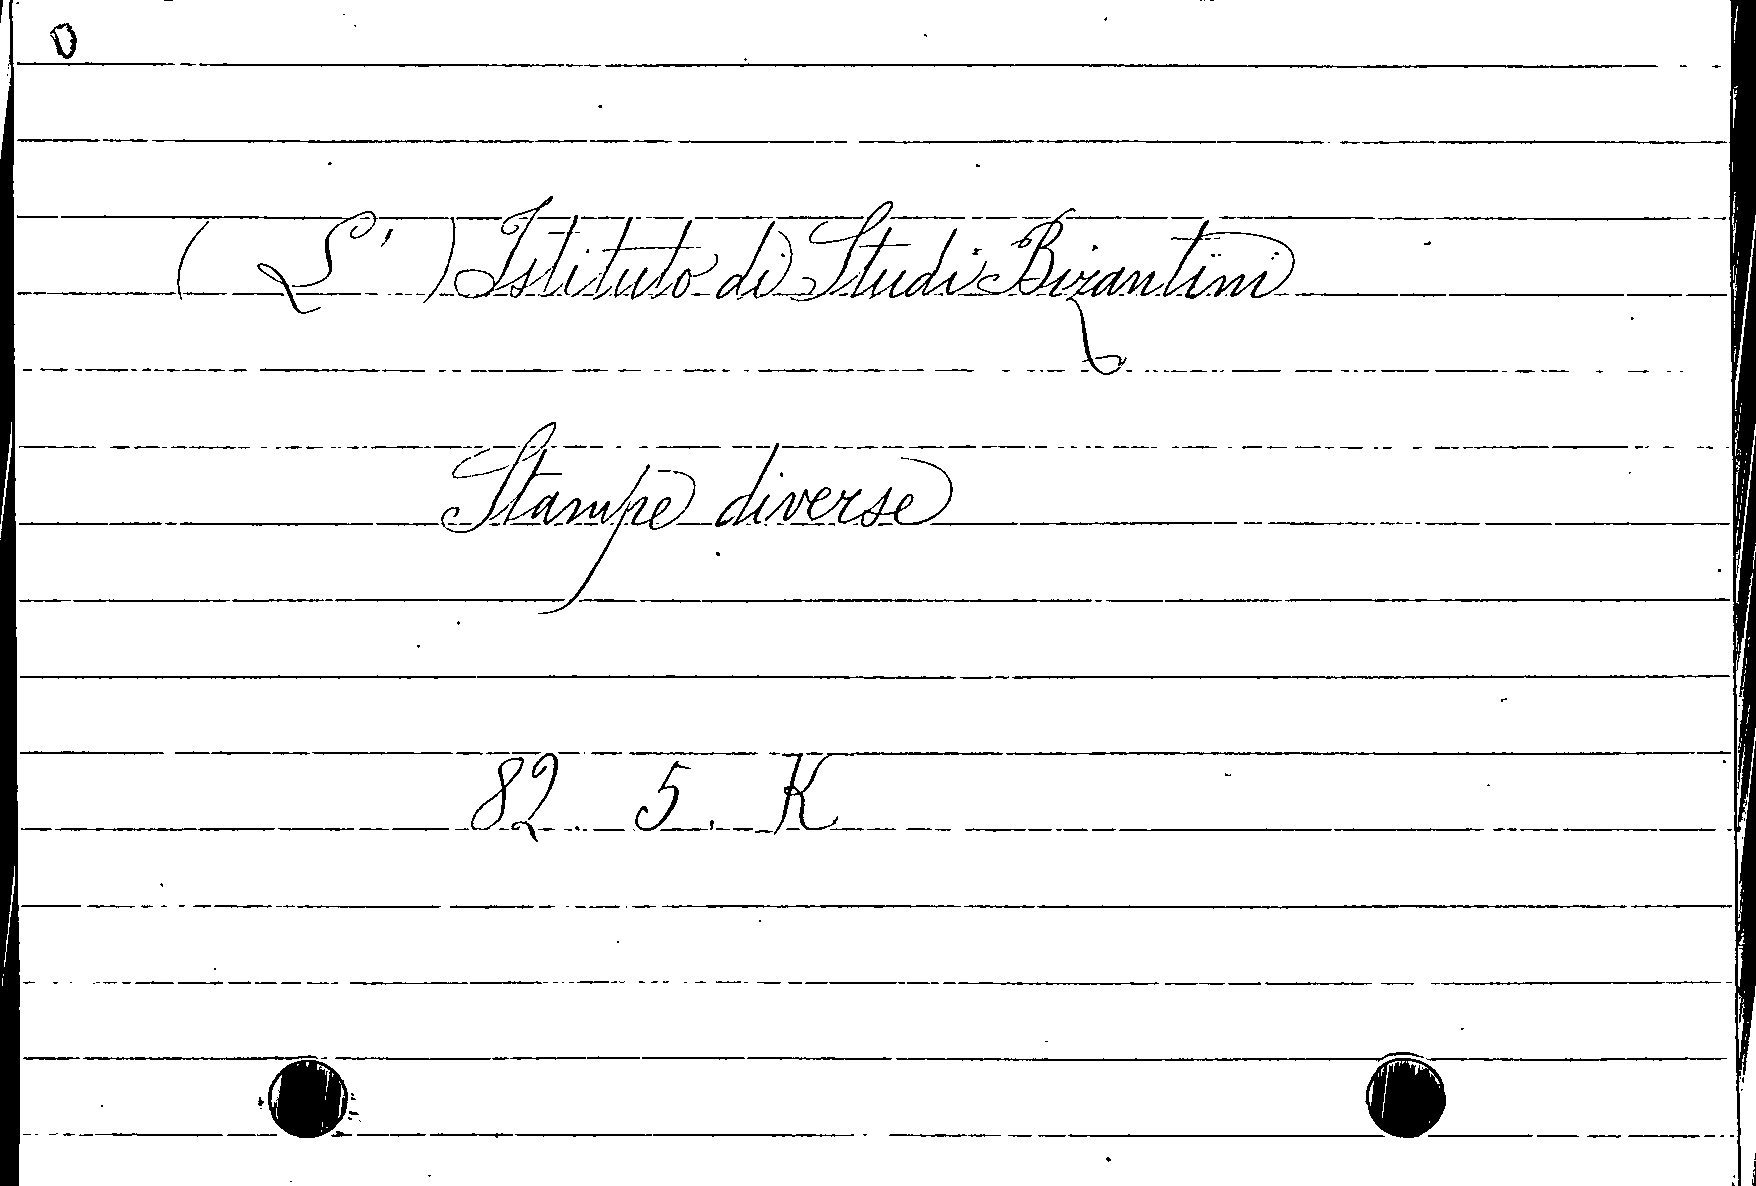 0
( L' ) Istituto di Studi Bizantini
Stampe diverse
82. 5. K